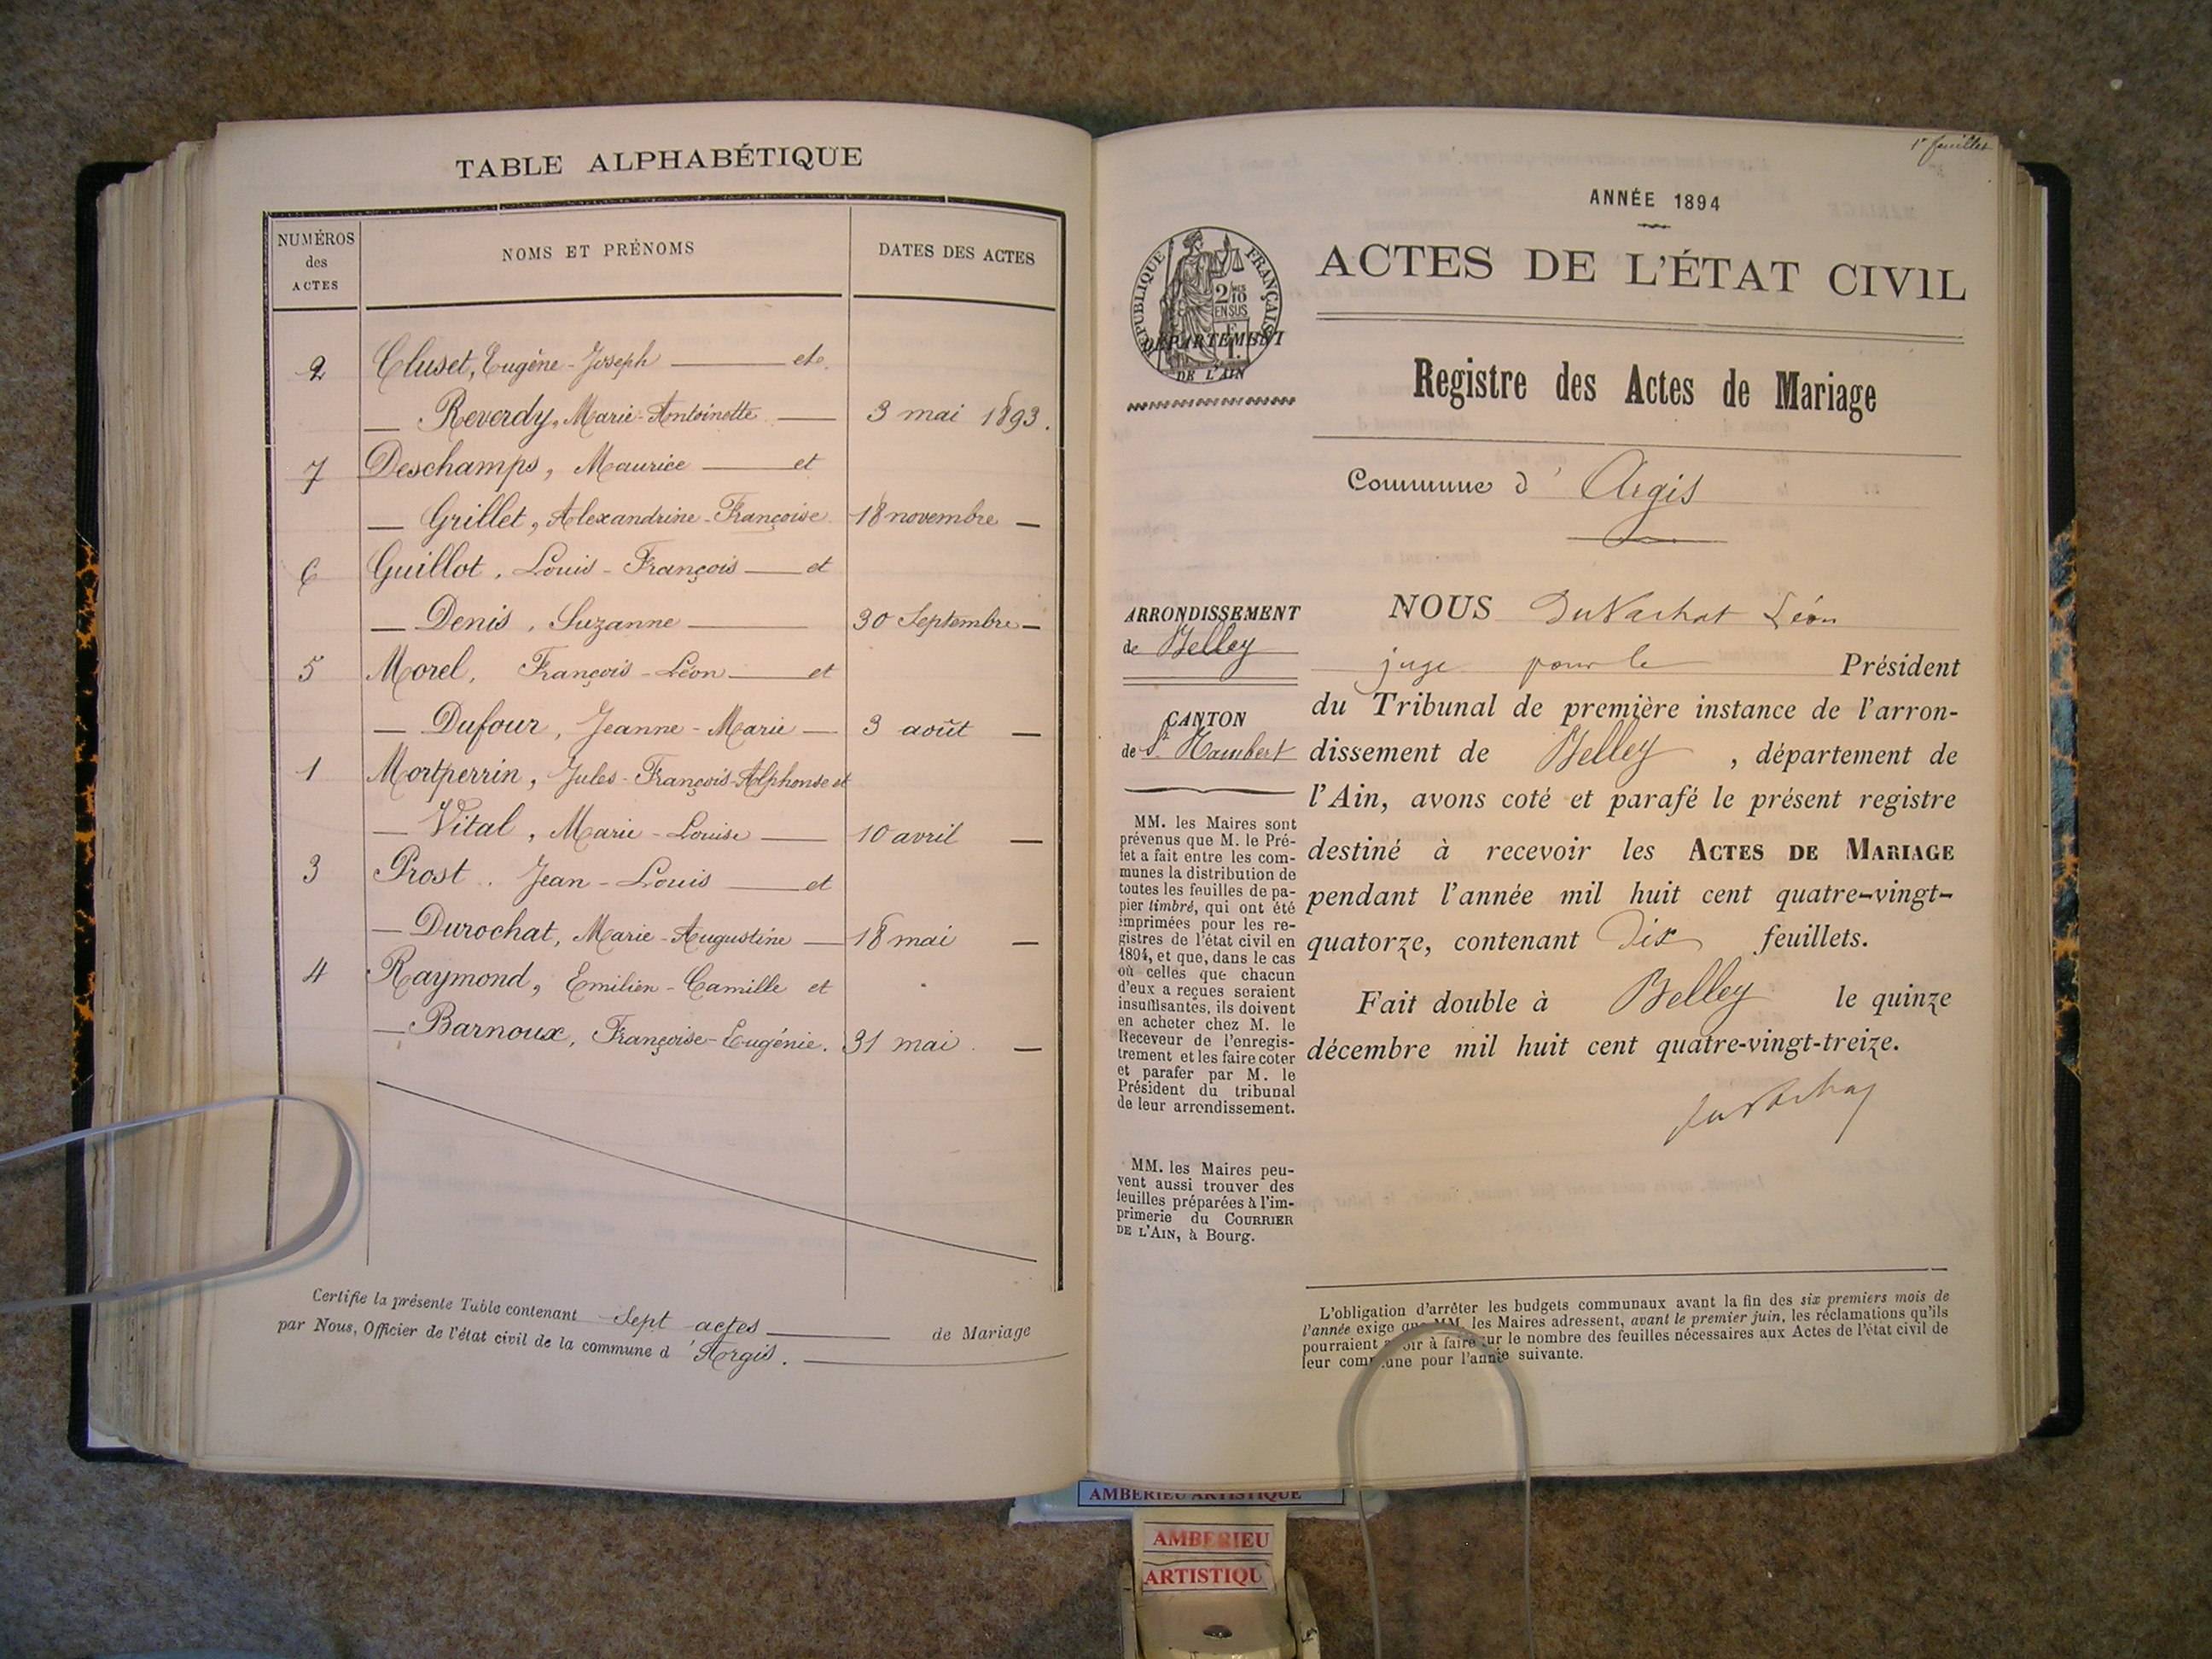 TABLE ALPHABÉTIQUE
NUMÉROS
des
ACTES
NOMS ET PRÉNOMS
DATES DES ACTES
2 Cluset, Eugène-Joseph et
— Reverdy, Marie-Antoinette — 3 mai 1893.
7 Deschamps, Maurice — et
— Grillet, Alexandrine-Françoise 18 novembre —
6 Guillot, Louis-François — et
— Denis, Suzanne — 30 Septembre —
5 Morel, François-Léon — et
— Dufour, Jeanne-Marie — 3 août —
1 Mortperrin, Jules-François-Alphonse et
— Vital, Marie-Louise — 10 avril —
3 Prost. Jean-Louis — et
— Durochat, Marie-Augustine — 18 mai —
4 Raymond, Emilien-Camille et
— Barnoux, Françoise-Eugénie. 31 mai —
Certifie la présente Table contenant Sept actes — de Mariage
par Nous, Officier de l'état civil de la commune d'Argis. —
1er feuillet
ANNÉE 1894
RÉPUBLIQUE FRANÇAISE
2/10
EN SUS
DÉPARTEMENT
DE L'AIN
ACTES DE L'ÉTAT CIVIL
Registre des Actes de Mariage
Commune d' Argis
ARRONDISSEMENT
de Belley
CANTON
de St Rambert
MM. les Maires sont
prévenus que M. le Pré-
fet a fait entre les com-
munes la distribution de
toutes les feuilles de pa-
pier timbré, qui ont été
imprimées pour les re-
gistres de l'état civil en
1894, et que, dans le cas
où celles que chacun
d'eux a reçues seraient
insuffisantes, ils doivent
en acheter chez M. le
Receveur de l'enregis-
trement et les faire coter
et parafer par M. le
Président du tribunal
de leur arrondissement.
MM. les Maires peu-
vent aussi trouver des
feuilles préparées à l'im-
primerie du COURRIER
DE L'AIN, à Bourg.
NOUS DuVachat Léon
juge pour le Président
du Tribunal de première instance de l'arron-
dissement de Belley, département de
l'Ain, avons coté et parafé le présent registre
destiné à recevoir les ACTES DE MARIAGE
pendant l'année mil huit cent quatre-vingt-
quatorze, contenant Dix feuillets.
Fait double à Belley le quinze
décembre mil huit cent quatre-vingt-treize.
L'obligation d'arrêter les budgets communaux avant la fin des six premiers mois de
l'année exige que MM. les Maires adressent, avant le premier juin, les réclamations qu'ils
pourraient avoir à faire sur le nombre des feuilles nécessaires aux Actes de l'état civil de
leur commune pour l'année suivante.
AMBERIEU ARTISTIQUE
AMBERIEU
ARTISTIQU